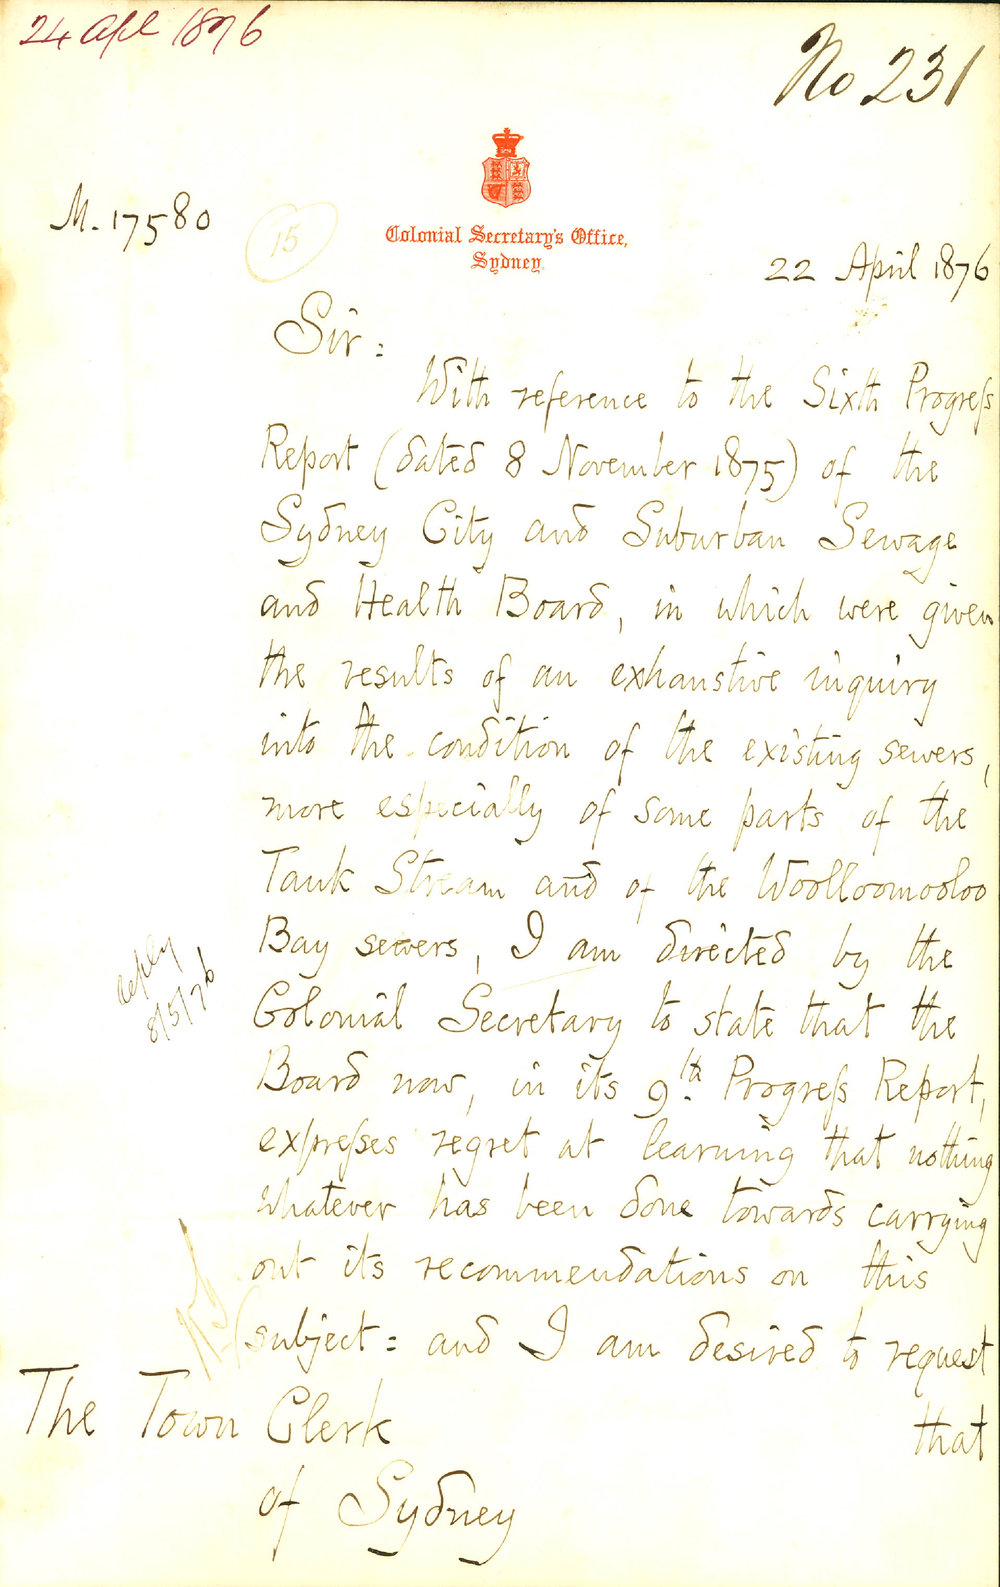 24 Apl 1876
No 231
M. 17580
15
Colonial Secretary's Office,
Sydney.
22 April 1876
Sir:
With reference to the Sixth Progress
Report (dated 8 November 1875) of the
Sydney City and Suburban Sewage
and Health Board, in which were given
the results of an exhaustive inquiry
into the condition of the existing sewers,
more especially of some parts of the
Tank Stream and of the Woolloomooloo
Bay sewers, I am directed by the
Colonial Secretary to state that the
Board now, in its 9th Progress Report,
expresses regret at learning that nothing
whatever has been done towards carrying
out its recommendations on this
subject: and I am desired to request
that
reply
8/5/76
The Town Clerk
of Sydney